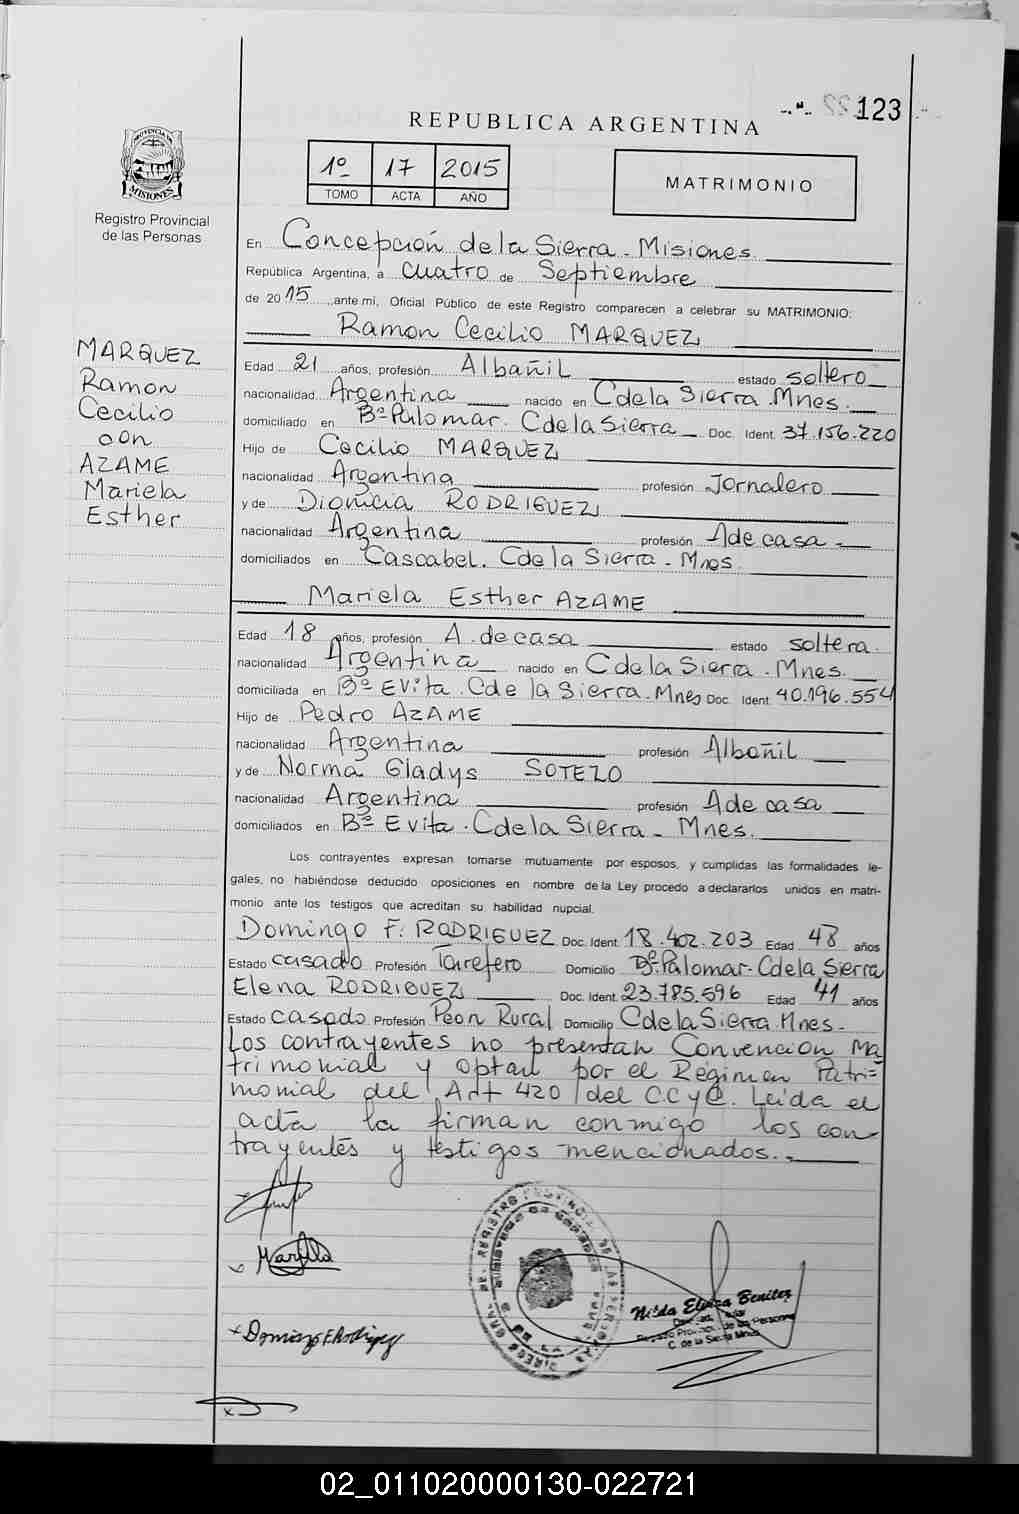 123
REPUBLICA ARGENTINA
PROVINCIA DE
MISIONES
Registro Provincial
de las Personas
1º 17 2015
TOMO ACTA AÑO
MATRIMONIO
En Concepción de la Sierra - Misiones.
Republica Argentina, a cuatro de Septiembre
de 2015, ante mi, Oficial Público de este Registro comparecen a celebrar su MATRIMONIO:
Ramon Cecilio MARQUEZ
MARQUEZ
Ramon
Cecilio
con
AZAME
Mariela
Esther
Edad 21 años, profesión Albañil estado soltero
nacionalidad Argentina nacido en C de la Sierra. Mnes.
domiciliado en Bº Palomar. C de la Sierra Doc. Ident. 37.156.220
Hijo de Cecilio MARQUEZ
nacionalidad Argentina profesión Jornalero
y de Dionicia RODRIGUEZ
nacionalidad Argentina profesión A de casa
domiciliados en Cascabel. C de la Sierra - Mnes.
Mariela Esther AZAME
Edad 18 años, profesión A. de casa estado soltera.
nacionalidad Argentina nacido en C de la Sierra. Mnes.
domiciliada en Bº Evita. C de la Sierra. Mnes Doc. Ident. 40.196.554
Hijo de Pedro AZAME
nacionalidad Argentina profesión Albañil
y de Norma Gladys SOTELO
nacionalidad Argentina profesión A de casa
domiciliados en Bº Evita. C de la Sierra - Mnes.
Los contrayentes expresan tomarse mutuamente por esposos, y cumplidas las formalidades le-
gales, no habiéndose deducido oposiciones en nombre de la Ley procedo a declararlos unidos en matri-
monio ante los testigos que acreditan su habilidad nupcial.
Domingo F. RODRIGUEZ Doc. Ident. 18.402.203 Edad 48 años
Estado casado Profesión Tarefero Domicilio Bº Palomar. C de la Sierra
Elena RODRIGUEZ Doc. Ident. 23.785.596 Edad 41 años
Estado casado Profesión Peon Rural Domicilio C de la Sierra Mnes.
Los contrayentes no presentan Convencion Ma
trimonial y optan por el Régimen Patri=
monial del Art 420 del C.C y C. Leida el
acta la firman conmigo los con-
trayentes y testigos mencionados.
Mariela
Domingo F. Rodriguez
Nilda Elvira Benitez
C. de la Sierra Mnes
02_011020000130-022721